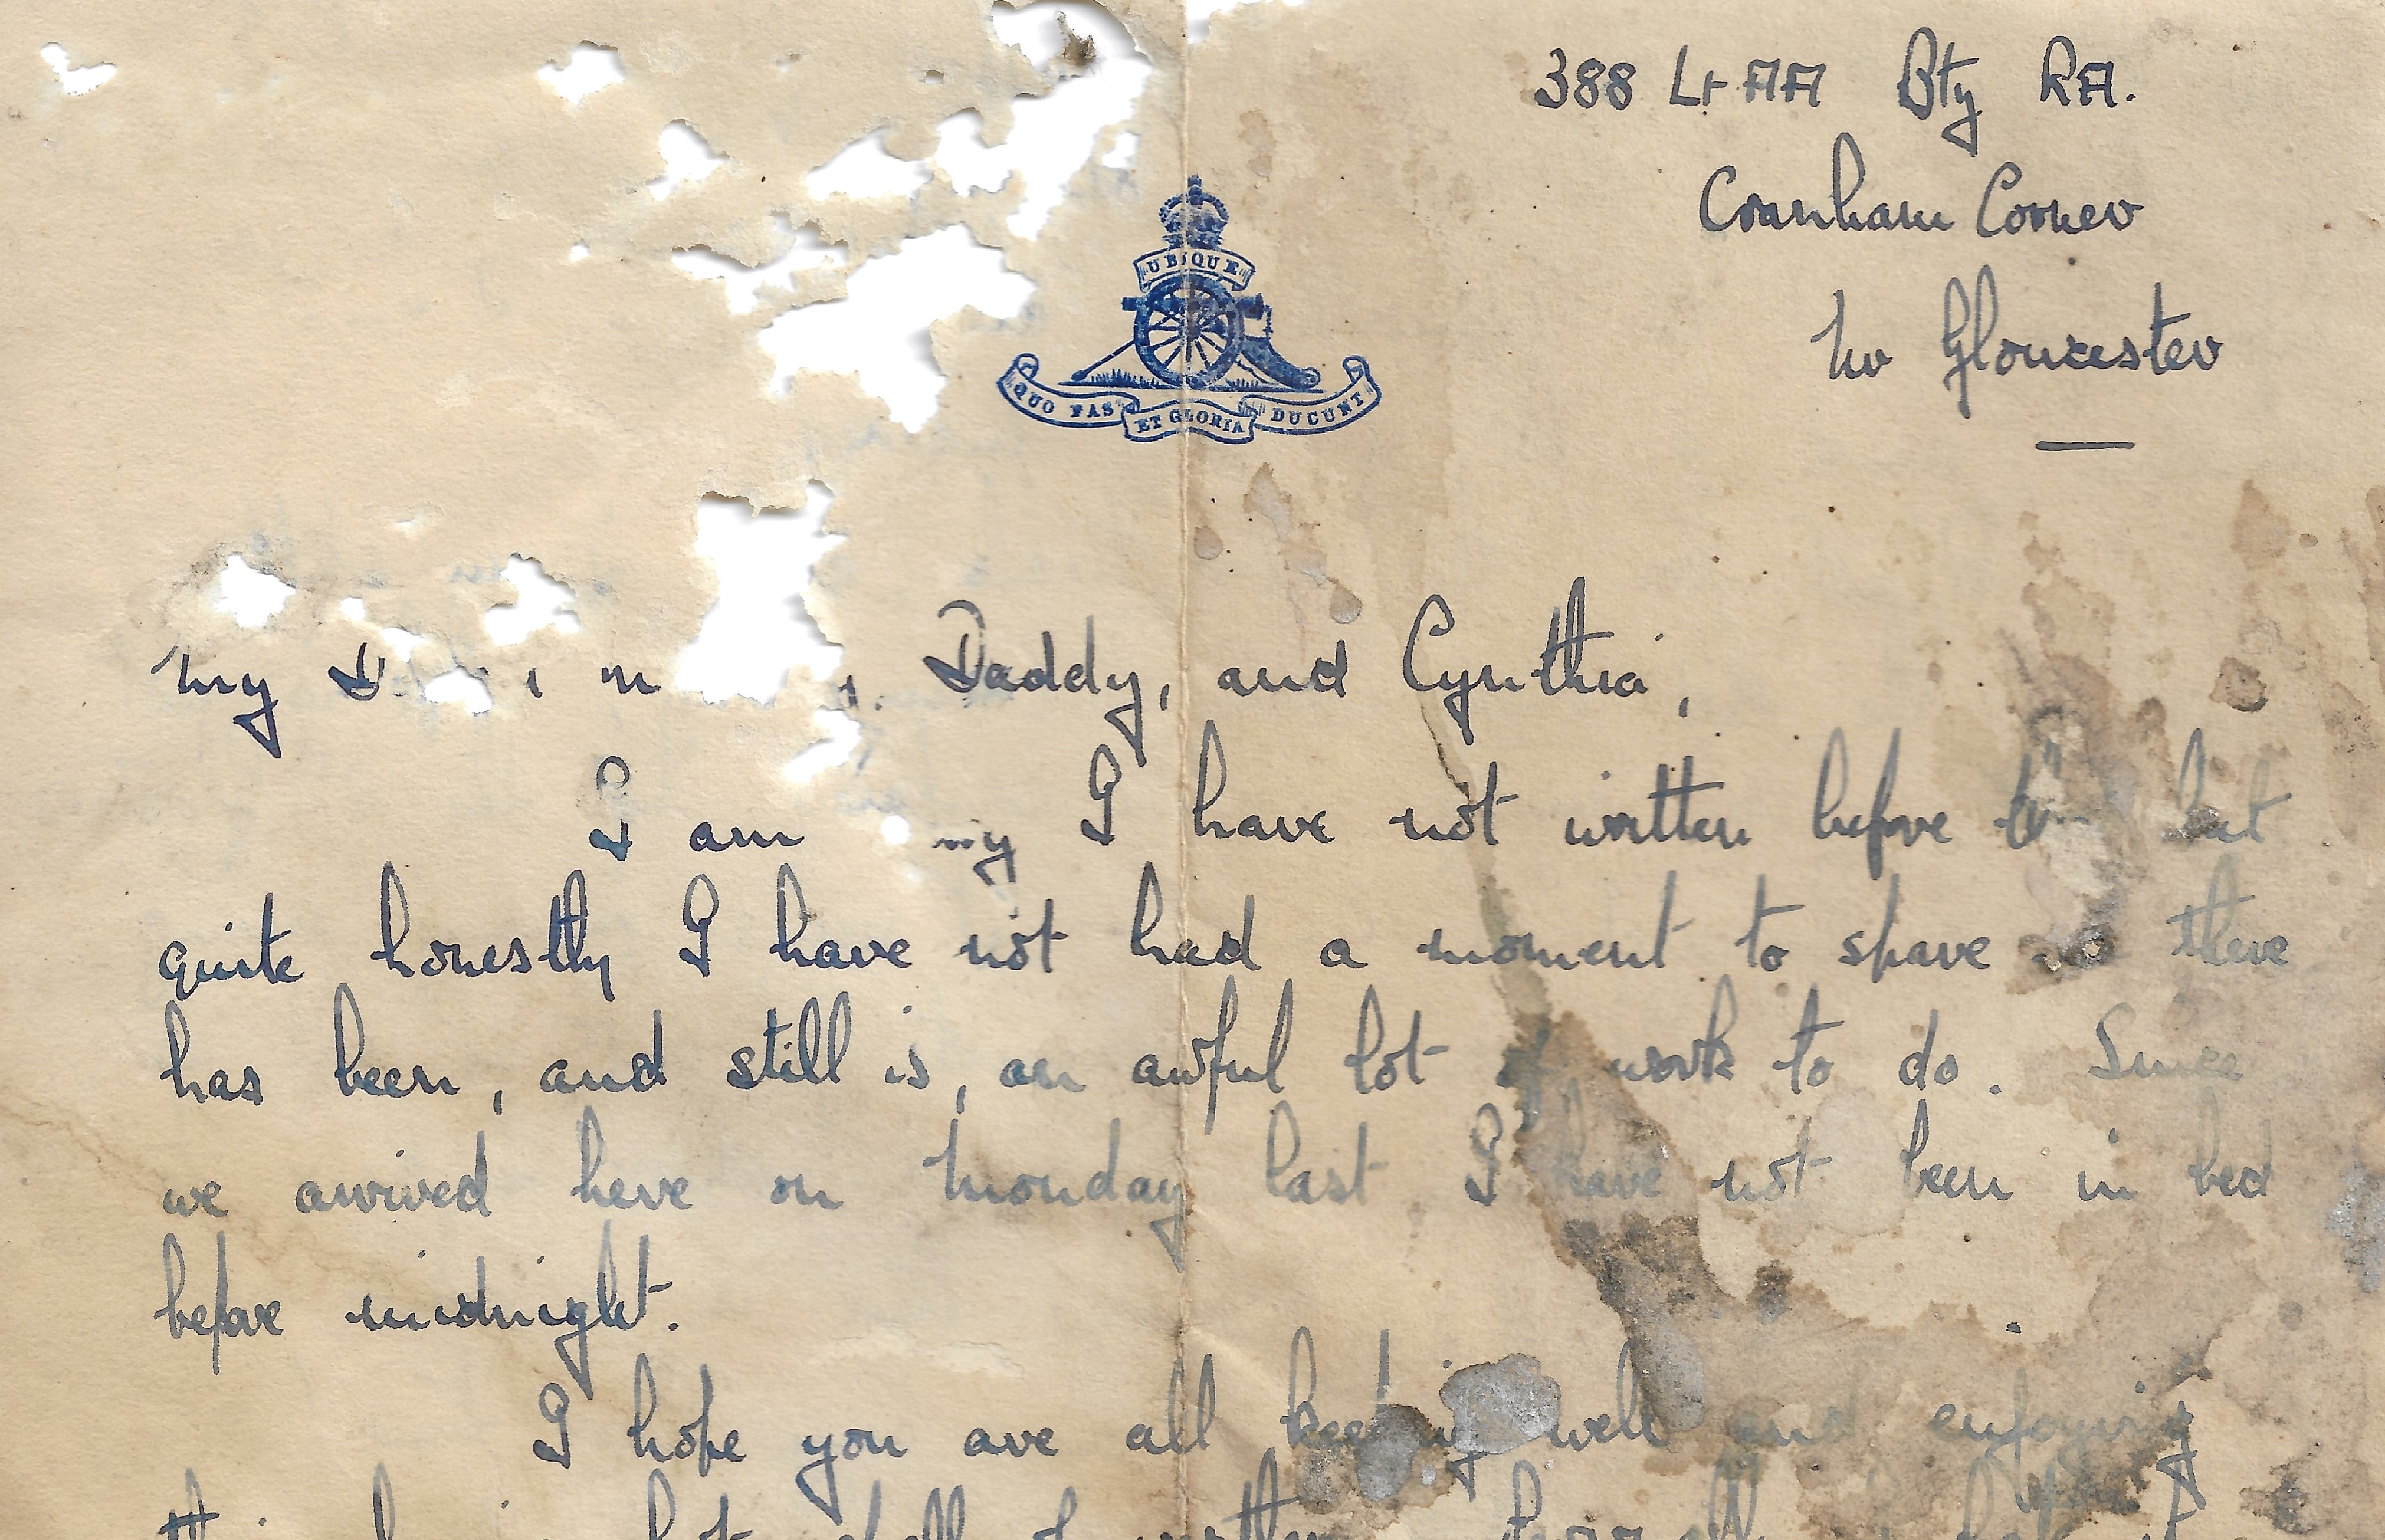 388 Lt AA Bty RA.
Cranham Corner
Nr Gloucester
UBIQUE
QUO FAS ET GLORIA DUCUNT
My Daddy, and Cynthia,
I am I have not written before but
quite honestly I have not had a moment to spare there
has been, and still is, an awful lot of work to do. Since
we arrived here on Monday last I have not been in bed
before midnight.
I hope you are all keeping well and enjoying